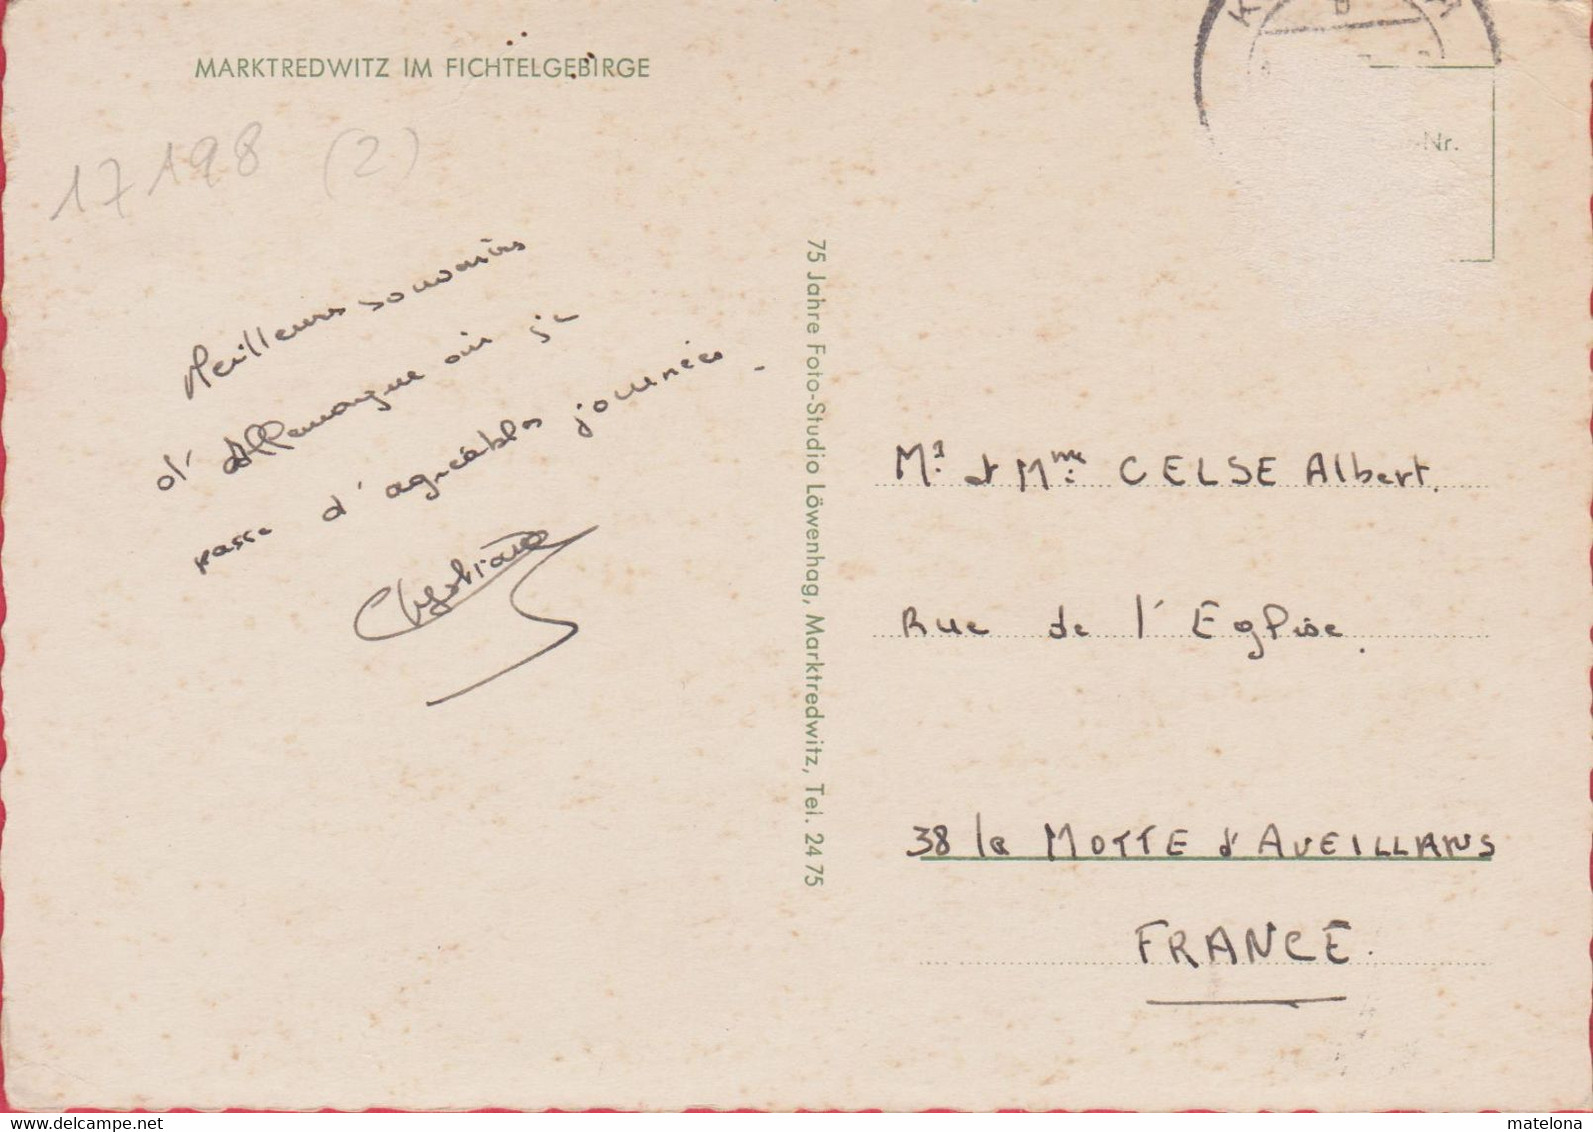 MARKTREDWITZ IM FICHTELGEBIRGE
17198 (2)
Meilleurs souvenirs
d'Allemagne où je
passe d'agréables journées.
75 Jahre Foto-Studio Löwenhag, Marktredwitz, Tel. 24 75
-Nr.
Mr. et Mme. CELSE Albert.
Rue de l'Eglise.
38 la MOTTE d'AVEILLANS
FRANCE.
www.delcampe.net
matelona